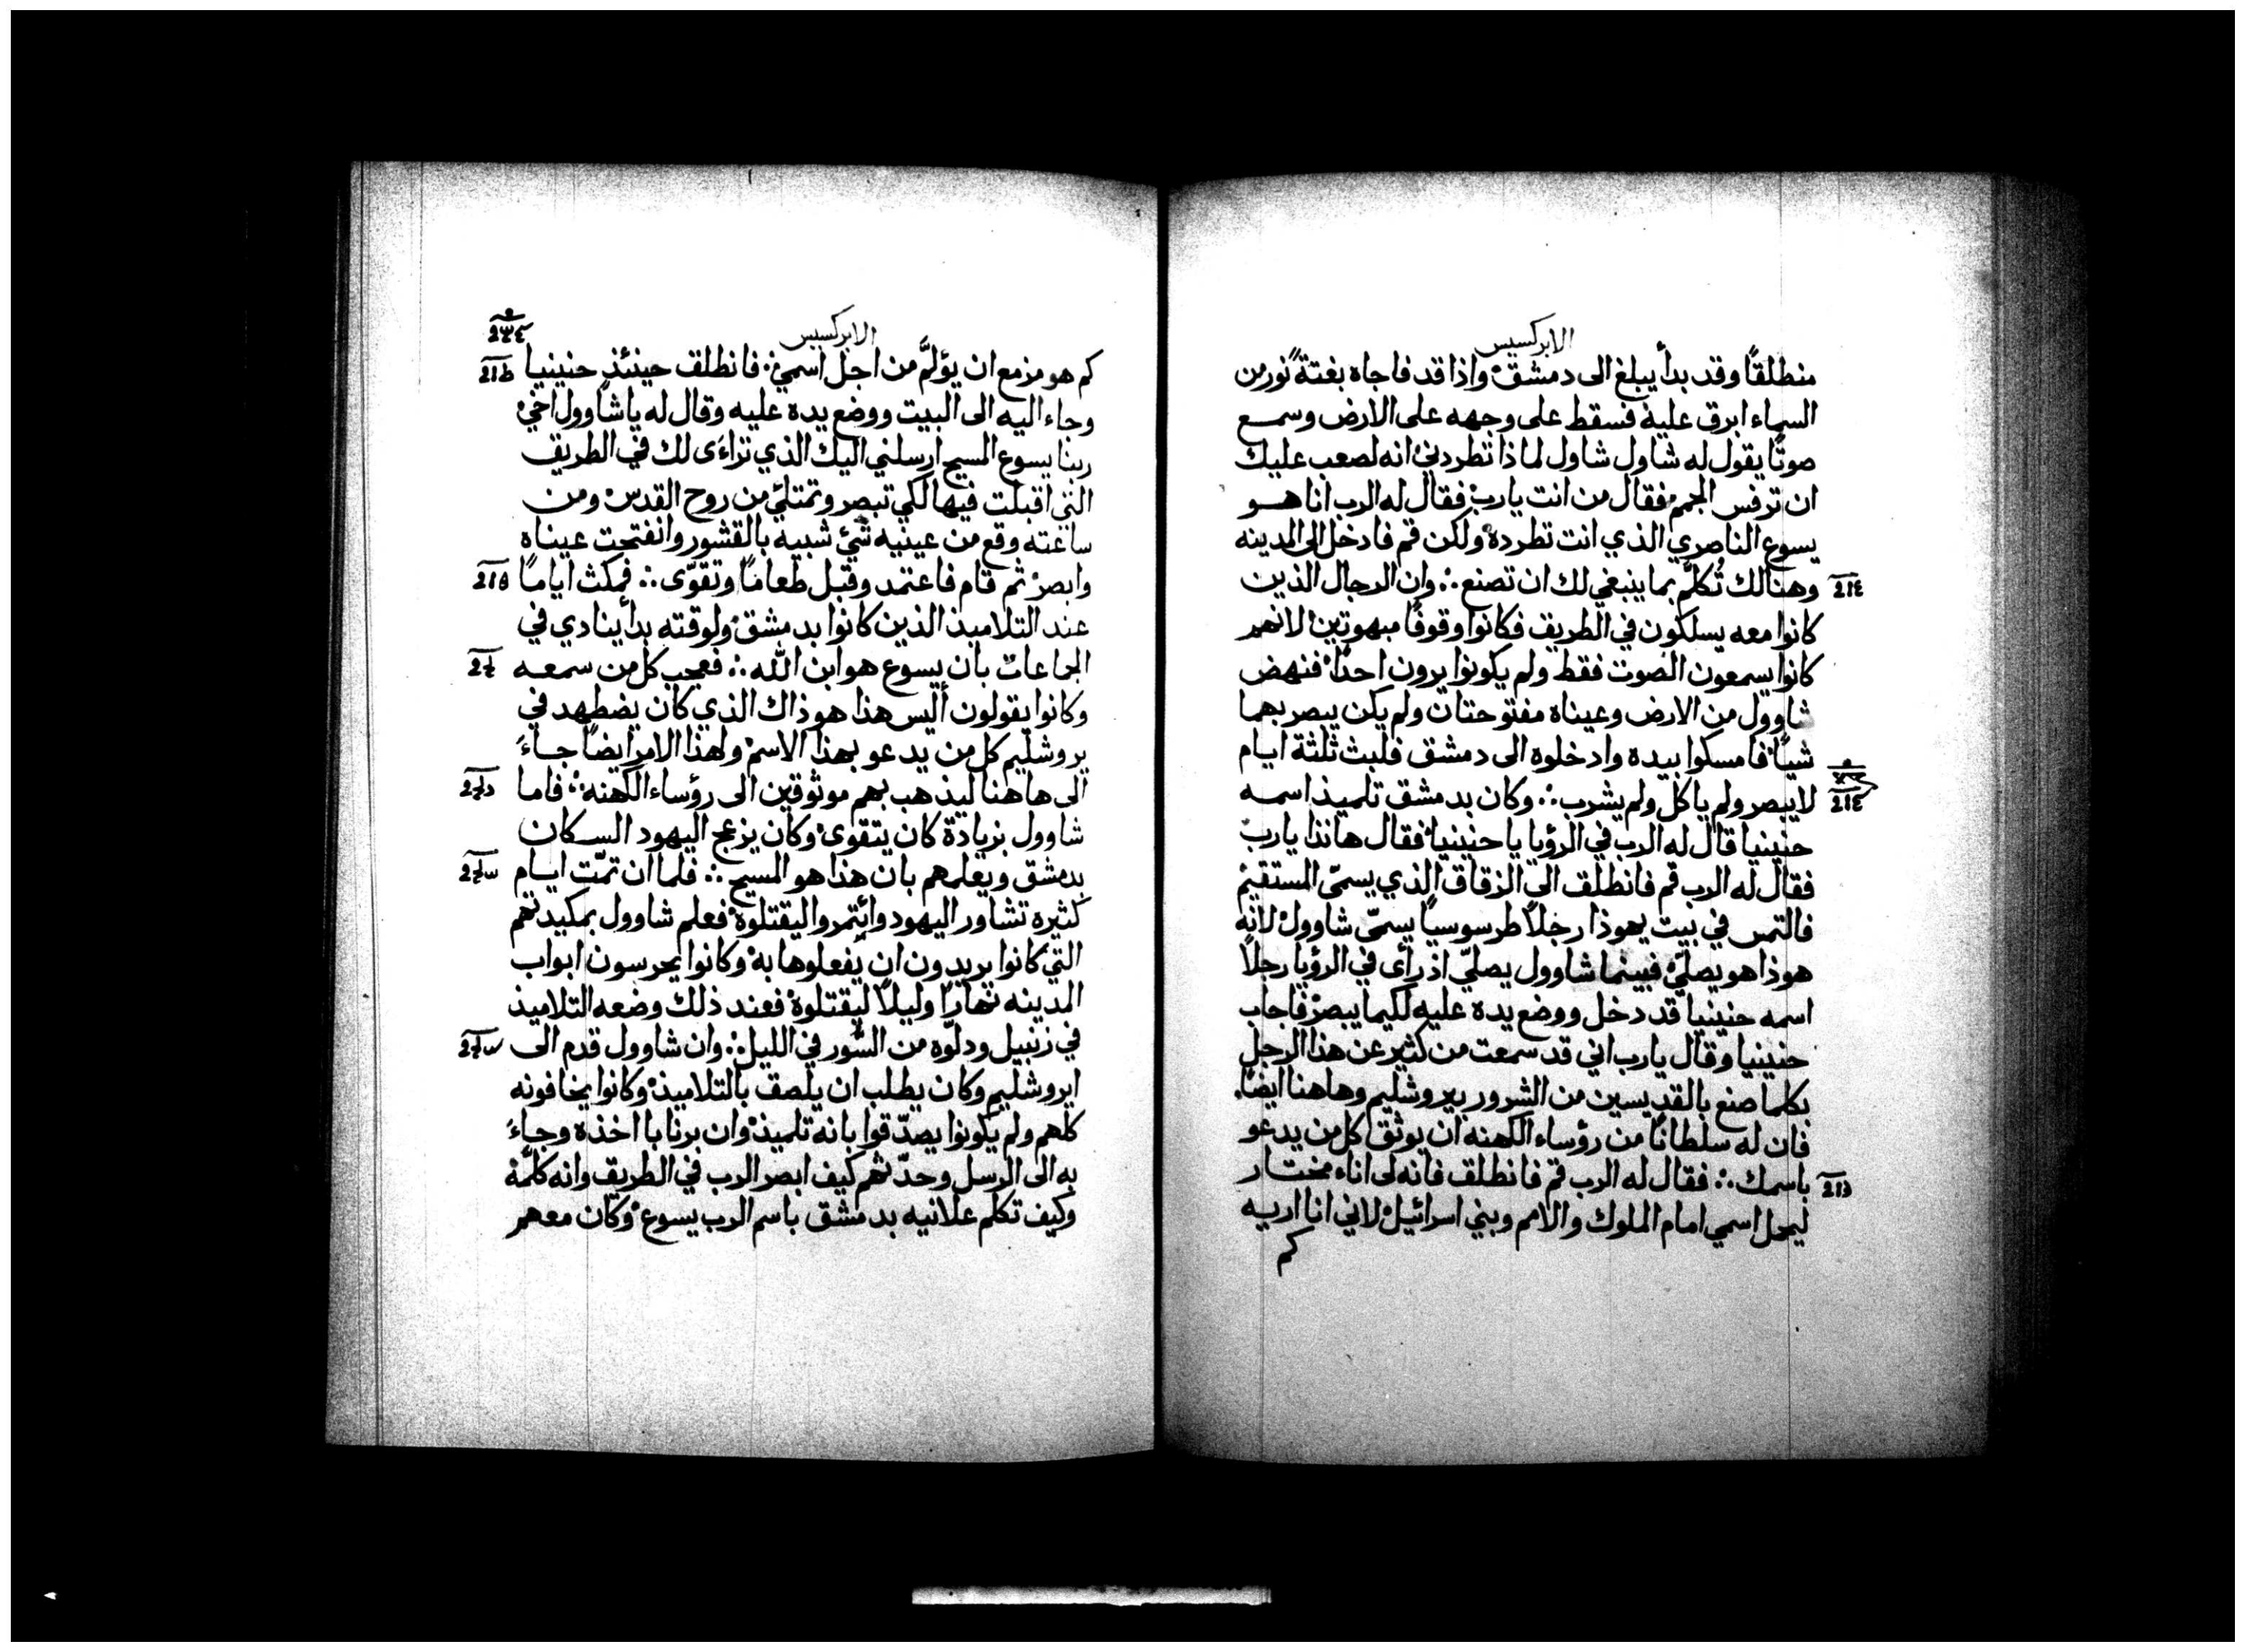 الابركسيس
منطلقًا وقد بدأ يبلغ الى دمشق واذا قد فاجاه بغتةً نور من
السماء ابرق عليه فسقط على وجهه على الارض وسمع
صوتًا يقول له شاول شاول لماذا تطردني انه لصعب عليك
ان ترفس المجم فقال من انت يارب فقال له الرب انا هو
يسوع الناصري الذي انت تطرده ولكن قم فادخل الى المدينه
وهنالك تُكلَّم بما ينبغي لك ان تصنع ∴ وان الرجال الذين
كانوا معه يسلكون في الطريق فكانوا وقوفًا مبهوتين لانهم
كانوا يسمعون الصوت فقط ولم يكونوا يرون احدًا فنهض
شاوول من الارض وعيناه مفتوحتان ولم يكن يبصر بهما
شيًا فامسكوا بيده وادخلوه الى دمشق فلبث ثلثة ايام
لا يبصر ولم ياكل ولم يشرب ∴ وكان بدمشق تلميذ اسمه
حنينيا قال له الرب في الرؤيا يا حنينيا فقال هانذا يارب
فقال له الرب قم فانطلق الى الزقاق الذي يسمّى المستقيم
فالتمس في بيت يهوذا رجلاً طرسوسيًا يسمّى شاوول لانه
هوذا هو يصلي فبينما شاوول يصلّي اذ رأى في الرؤيا رجلاً
اسمه حنينيا قد دخل ووضع يده عليه لكيما يبصر فاجاب
حنينيا وقال يارب اني قد سمعت من كثير عن هذا الرجل
بكلما صنع بالقديسين من الشرور بيروشليم وهاهنا ايضًا
فان له سلطانًا من رؤساء الكهنه ان يوثق كل من يدعو
باسمك ∴ فقال له الرب قم فانطلق فانه لى اناء مختار
ليحمل اسمي امام الملوك والامم وبني اسرائيل لاني انا اريه
كم
الابركسيس
كم هو مزمع ان يؤلَّم من اجل اسمي ∴ فانطلق حينئذٍ حنينيا
وجاء اليه الى البيت ووضع يده عليه وقال له يا شاوول اخي
ربنا يسوع المسيح ارسلني اليك الذي تراءَى لك في الطريق
التي اقبلت فيها لكي تبصر وتمتلئ من روح القدس ومن
ساعته وقع من عينيه شئ شبيه بالقشور وانفتحت عيناه
وابصر ثم قام فاعتمد وقبل طعامًا وتقوّى ∴ فمكث ايامًا
عند التلاميذ الذين كانوا بدمشق ولوقته بدأ ينادي في
الجماعات بان يسوع هو ابن الله ∴ فعجب كل من سمعه
وكانوا يقولون أليس هذا هو ذاك الذي كان يضطهد في
يروشليم كل من يدعو بهذا الاسم ولهذا الامر ايضًا جاءَ
الى هاهنا ليذهب بهم موثوقين الى رؤساء الكهنه ∴ فاما
شاوول بزيادة كان يتقوى وكان يزعج اليهود السكان
بدمشق ويعلمهم بان هذا هو المسيح ∴ فلما ان تمّت ايام
كثيره تشاور اليهود وائتمروا ليقتلوه فعلم شاوول بمكيدتهم
التي كانوا يريدون ان يفعلوها به وكانوا يحرسون ابواب
المدينه نهارًا وليلاً ليقتلوه فعند ذلك وضعه التلاميذ
في زنبيل ودلّوه من السُّور في الليل ∴ وان شاوول قدم الى
ايروشليم وكان يطلب ان يلصق بالتلاميذ وكانوا يخافونه
كلهم ولم يكونوا يصدّقوا بانه تلميذ وان برنابا اخذه وجاءَ
به الى الرسل وحدّثهم كيف ابصر الرب في الطريق وانه كلّمه
وكيف تكلم علانيه بدمشق باسم الرب يسوع وكان معهم